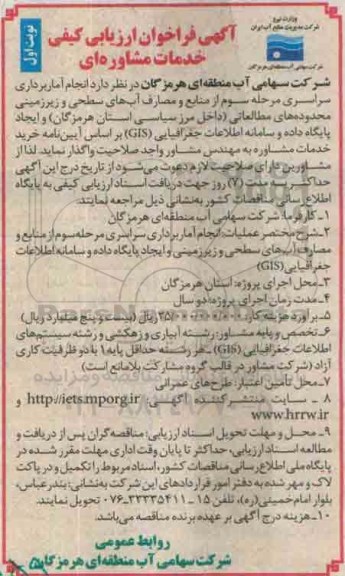 وزارت نیرو
شرکت مدیریت منابع آب ایران
شرکت سهامی آب منطقه‌ای هرمزگان
نوبت اول
آگهی فراخوان ارزیابی کیفی
خدمات مشاوره‌ای
شرکت سهامی آب منطقه‌ای هرمزگان در نظر دارد انجام آماربرداری
سراسری مرحله سوم از منابع و مصارف آب‌های سطحی و زیرزمینی
محدوده‌های مطالعاتی (داخل مرز سیاسی استان هرمزگان) و ایجاد
پایگاه داده و سامانه اطلاعات جغرافیایی (GIS) بر اساس آیین‌نامه خرید
خدمات مشاوره به مهندس مشاور واجد صلاحیت واگذار نماید. لذا از
مشاورین دارای صلاحیت لازم دعوت می‌شود از تاریخ درج این آگهی
حداکثر به مدت (۷) روز جهت دریافت اسناد ارزیابی کیفی به پایگاه
اطلاع رسانی مناقصات کشور به‌نشانی ذیل مراجعه نمایند:
۱ـ کارفرما: شرکت سهامی آب منطقه‌ای هرمزگان
۲ـ شرح مختصر عملیات: انجام آماربرداری سراسری مرحله سوم از منابع و
مصارف آب‌های سطحی و زیرزمینی و ایجاد پایگاه داده و سامانه اطلاعات
جغرافیایی (GIS)
۳ـ محل اجرای پروژه: استان هرمزگان
۴ـ مدت زمان اجرای پروژه: دو سال
۵ـ برآورد هزینه کار: ۲۵/۰۰۰/۰۰۰/۰۰۰ ریال (بیست و پنج میلیارد ریال)
۶ـ تخصص و پایه مشاور: رشته آبیاری و زهکشی و رشته سیستم‌های
اطلاعات جغرافیایی (GIS) ـ هر رشته حداقل پایه ۱ با دو ظرفیت کاری
آزاد (شرکت مشاور در قالب گروه مشارکت بلامانع است)
۷ـ محل تأمین اعتبار: طرح‌های عمرانی
۸ ـ سایت منتشر کننده آگهی: http://iets.mporg.ir و
www.hrrw.ir
۹ـ محل و مهلت تحویل اسناد ارزیابی: مناقصه‌گران پس از دریافت و
مطالعه اسناد ارزیابی، حداکثر تا پایان وقت اداری مهلت مقرر شده در
پایگاه ملی اطلاع رسانی مناقصات کشور، اسناد مربوط را تکمیل و در پاکت
لاک و مهر شده به دفتر امور قراردادهای این شرکت به‌نشانی: بندرعباس،
بلوار امام خمینی (ره)، تلفن ۱۵ ـ ۳۳۳۳۵۴۱۱-۰۷۶ تحویل نمایند.
۱۰ـ هزینه درج آگهی بر عهده برنده مناقصه می‌باشد.
روابط عمومی
شرکت سهامی آب منطقه‌ای هرمزگان